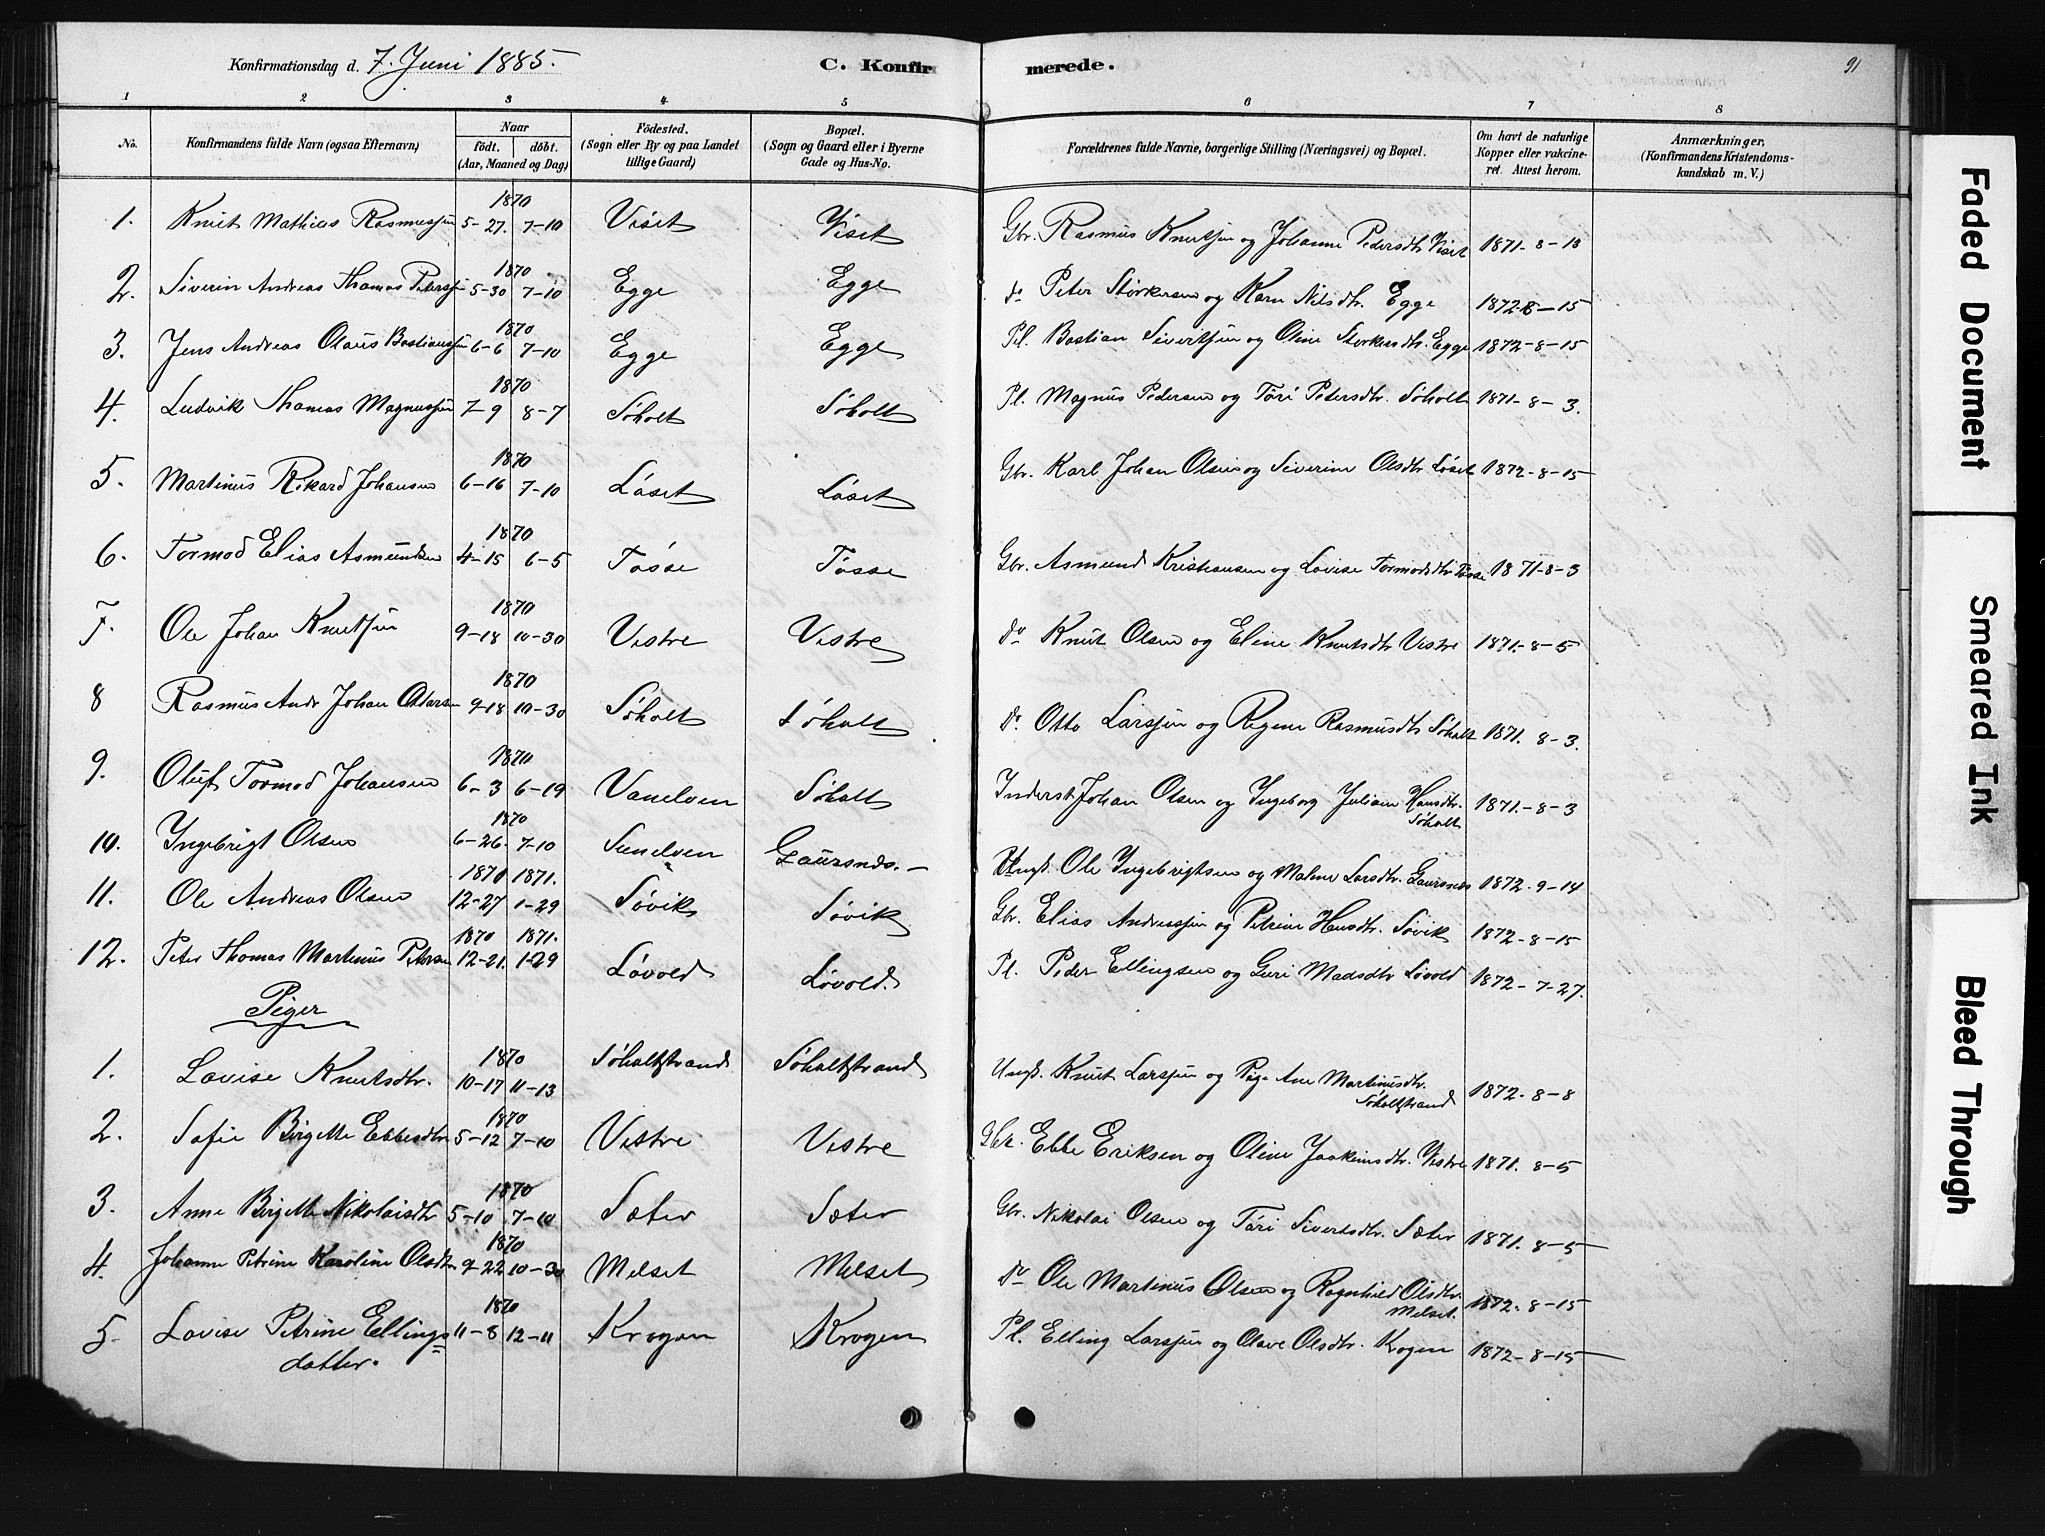 Konfirmationsdag d. 7. Juni 1885. C. Konfirmerede. 91
1 2 3 4 5 6 7 8
No. Konfirmandens fulde Navn (ogsaa Efternavn) Naar födt. döbt. (Aar, Maaned og Dag) Födested. (Sogn eller By og paa Landet tillige Gaard) Bopæl. (Sogn og Gaard eller i Byerne Gade og Hus-No. Forældrenes fulde Navne, borgerlige Stilling (Næringsvei) og Bopæl. Om havt de naturlige Kopper eller vakcineret. Attest herom. Anmærkninger, (Konfirmandens Kristendomskundskab m. V.)
1. Knut Mathias Rasmussen 1870 5-27. 7-10 Viset Viset Gbr. Rasmus Knutsen og Johanne Pedersdtr Viset 1871-8-18
2. Siverin Andreas Thomas Peterss 1870 5-30 7-10 Egge Egge do Peter Størkersen og Karn Nilsdtr. Egge 1872-8-15
3. Jens Andreas Olaus Bastianssen 1870 6-6 7-10 Egge Egge Pl. Bastian Sivertsen og Oline Størkersdtr. Egge 1872-8-15
4. Ludvik Thomas Magnussen 1870 7-9 8-7 Søholt Søholt Pl. Magnus Pedersen og Tøri Petersdtr. Søholt 1871-8-3.
5. Martinus Rikard Johansen 1870 6-16 7-10 Løset Løset Gbr. Karl Johan Olsen og Siverine Olsdtr. Løset 1872-8-15
6. Tormod Elias Asmundsen 1870 4-15 6-5 Tøsse Tøsse Gbr. Asmund Kristiansen og Lovise Tormodsdtr Tøsse 1871-8-3
7. Ole Johan Knutsen 1870 9-18 10-30 Vestre Vestre do Knut Olsen og Eline Knutsdtr Vestre 1871.-8-5
8 Rasmus Andr Johan Ottersen 1870 9-18 10-30 Søholt Søholt do Otto Larssen og Regine Rasmusdtr Søholt 1871.8-3.
9. Oluf Tormod Johansen 1870 6-3 6-19 Vanelven Søholt Inderst Johan Olsen og Ingeborg Juliane Hansdtr. Søholt 1871.-8-3
10. Ingebrigt Olsen 1870 6-26. 7-10 Sunelven Gaursnes.- Ungk. Ole Ingebrigtsen og Malene Larsdtr. Gaursnes 1872.9-14
11. Ole Andreas Olsen 1870 1871. 12-27 1-29 Søvik Søvik Gbr. Elias Andreassen og Petrine Hansdtr. Søvik 1872-8-15
12. Peter Thomas Martinus Petersen 1870 1871. 12-21. 1-29 Løvold Løvold. Pl. Peder Ellingsen og Guri Madsdtr Løvold 1872-7-27.
Piger
1. Lovise Knutsdtr. 1870 10-17 11-13 Søholtstrand Søholtstrand Ungk. Knut Larssen og Pige Ane Martinusdtr. Søholtstrand 1872.8-8
2. Sofie Birgette Ebbesdtr 1870 5-12 7-10 Vestre Vestre Gbr. Ebbe Eriksen og Oline Joakimsdtr. Vestre 1871.8-5
3. Anne Birgette Nikolaisdtr 1870 5-10 7-10 Sæter Sæter Gbr. Nikolai Olsen og Tøri Sivertsdtr. Sæter 1871.8-5
4. Johanne Petrine Karoline Olsdtr 1870 9-22 10-30 Melset Melset do Ole Martinus Olsen og Ragnhild Olsdtr. Melset. 1872.8-15
5. Lovise Petrine Ellings= datter. 1870 11-8 12-11 Krogen Krogen Pl. Elling Larssen og Olave Olsdtr. Krogen 1872-8-15
Faded Document
Smeared Ink
Bleed Through